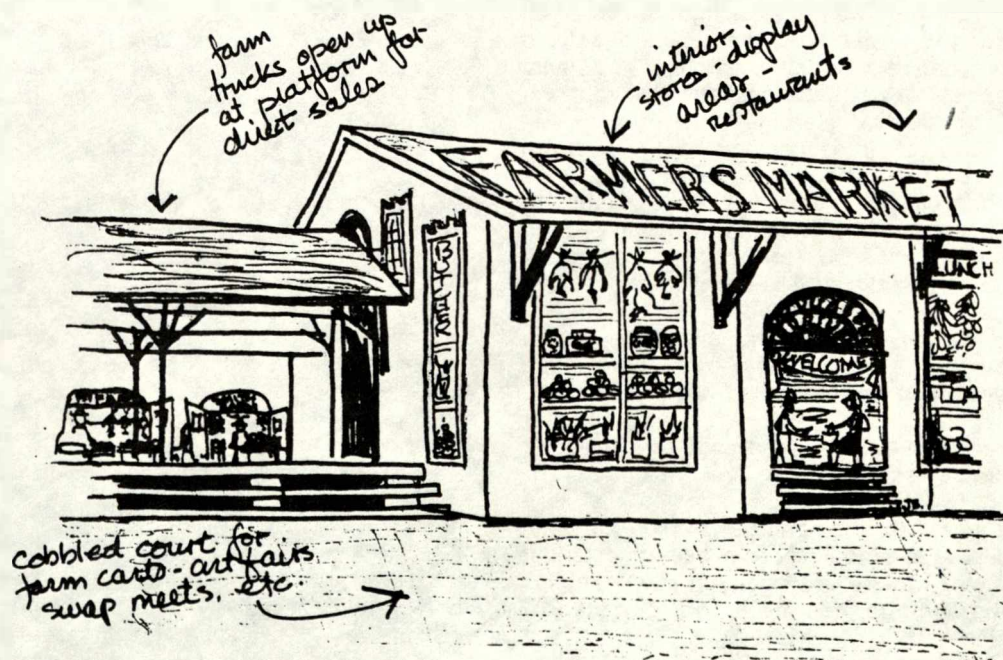 farm
trucks open up
at platform for
direct sales
interior
stores - display
areas -
restaurants
FARMERS MARKET
BUTTER
LUNCH
WELCOME
cobbled court for
farm carts - art fairs
swap meets, etc.